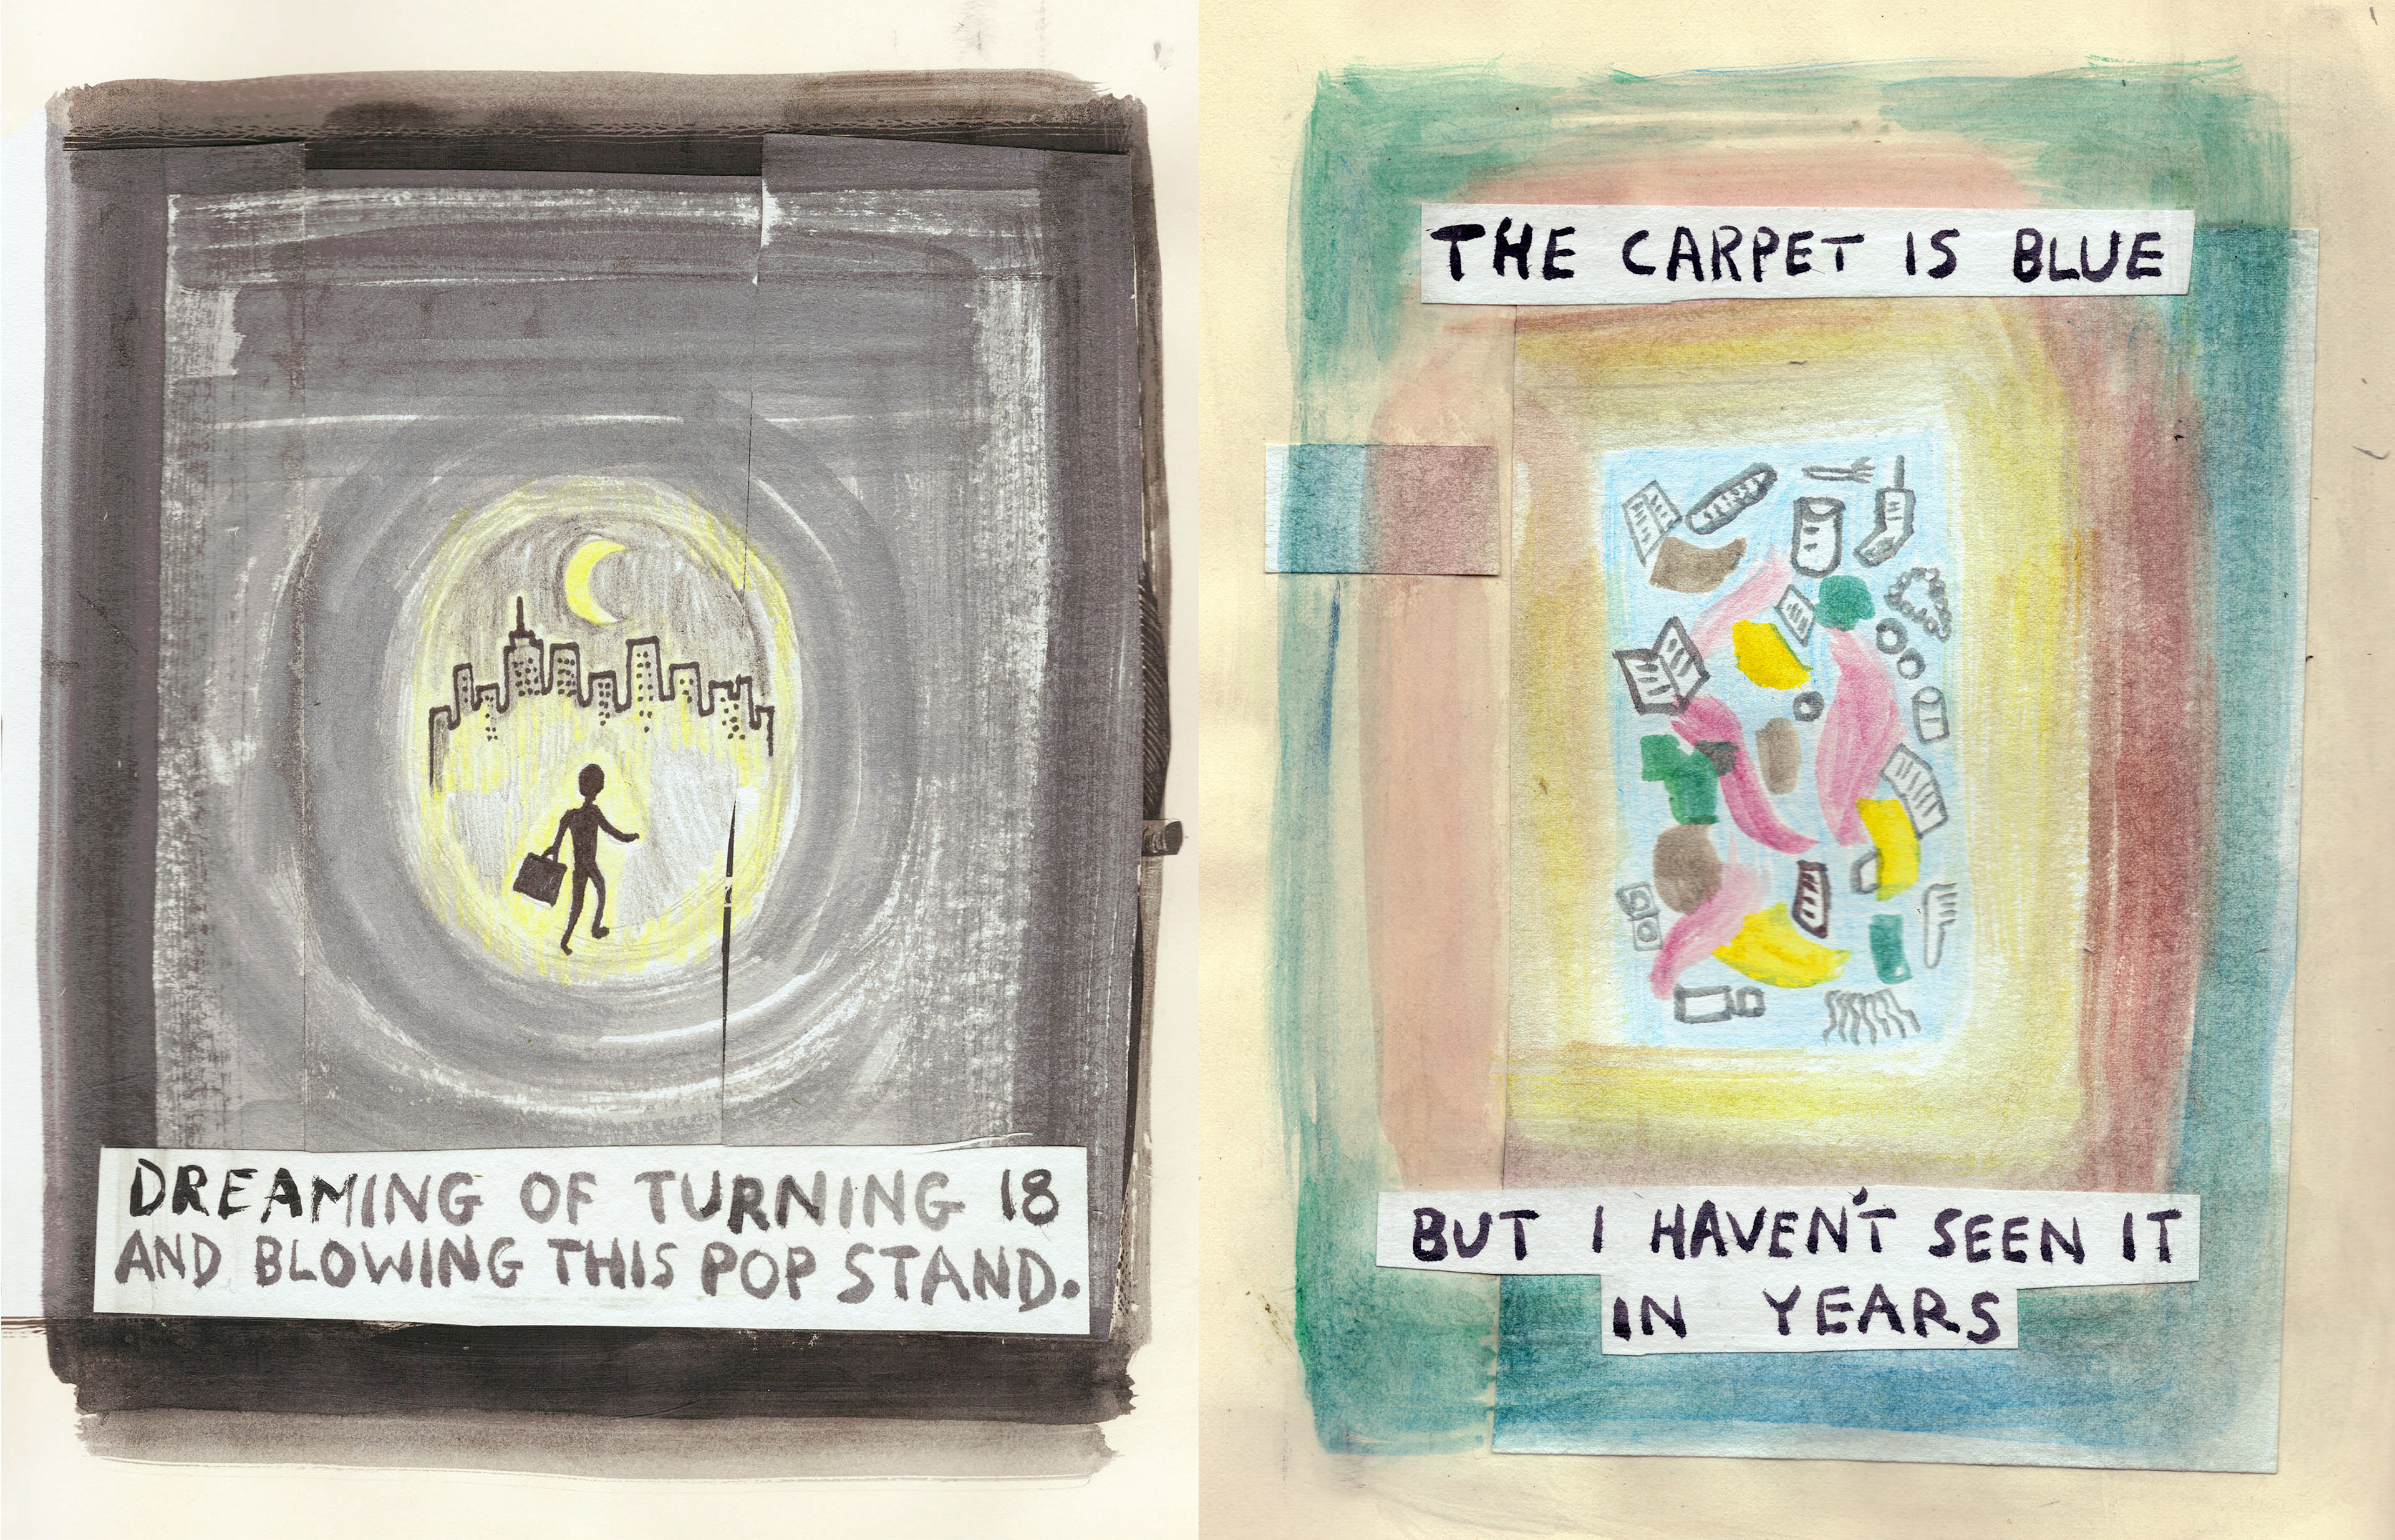 DREAMING OF TURNING 18
AND BLOWING THIS POP STAND.
THE CARPET IS BLUE
BUT I HAVEN'T SEEN IT
IN YEARS